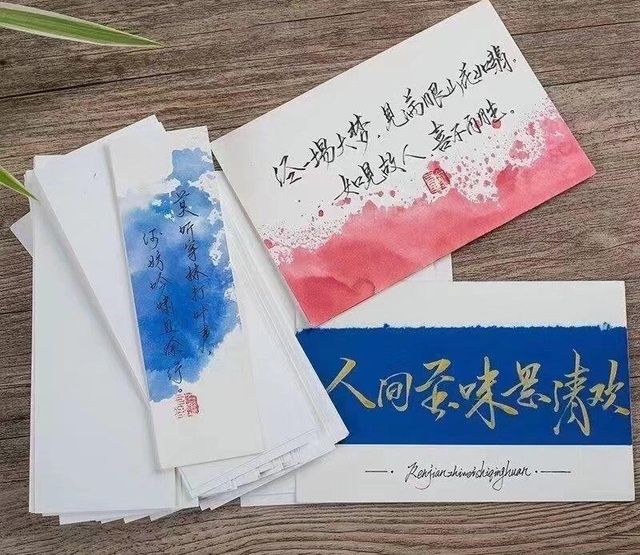 经一场大梦，见满眼山花如翡。
如见故人、喜不自胜。
莫听穿林打叶声，
何妨吟啸且徐行。
人间至味是清欢
Renjianzhiweishiqinghuan